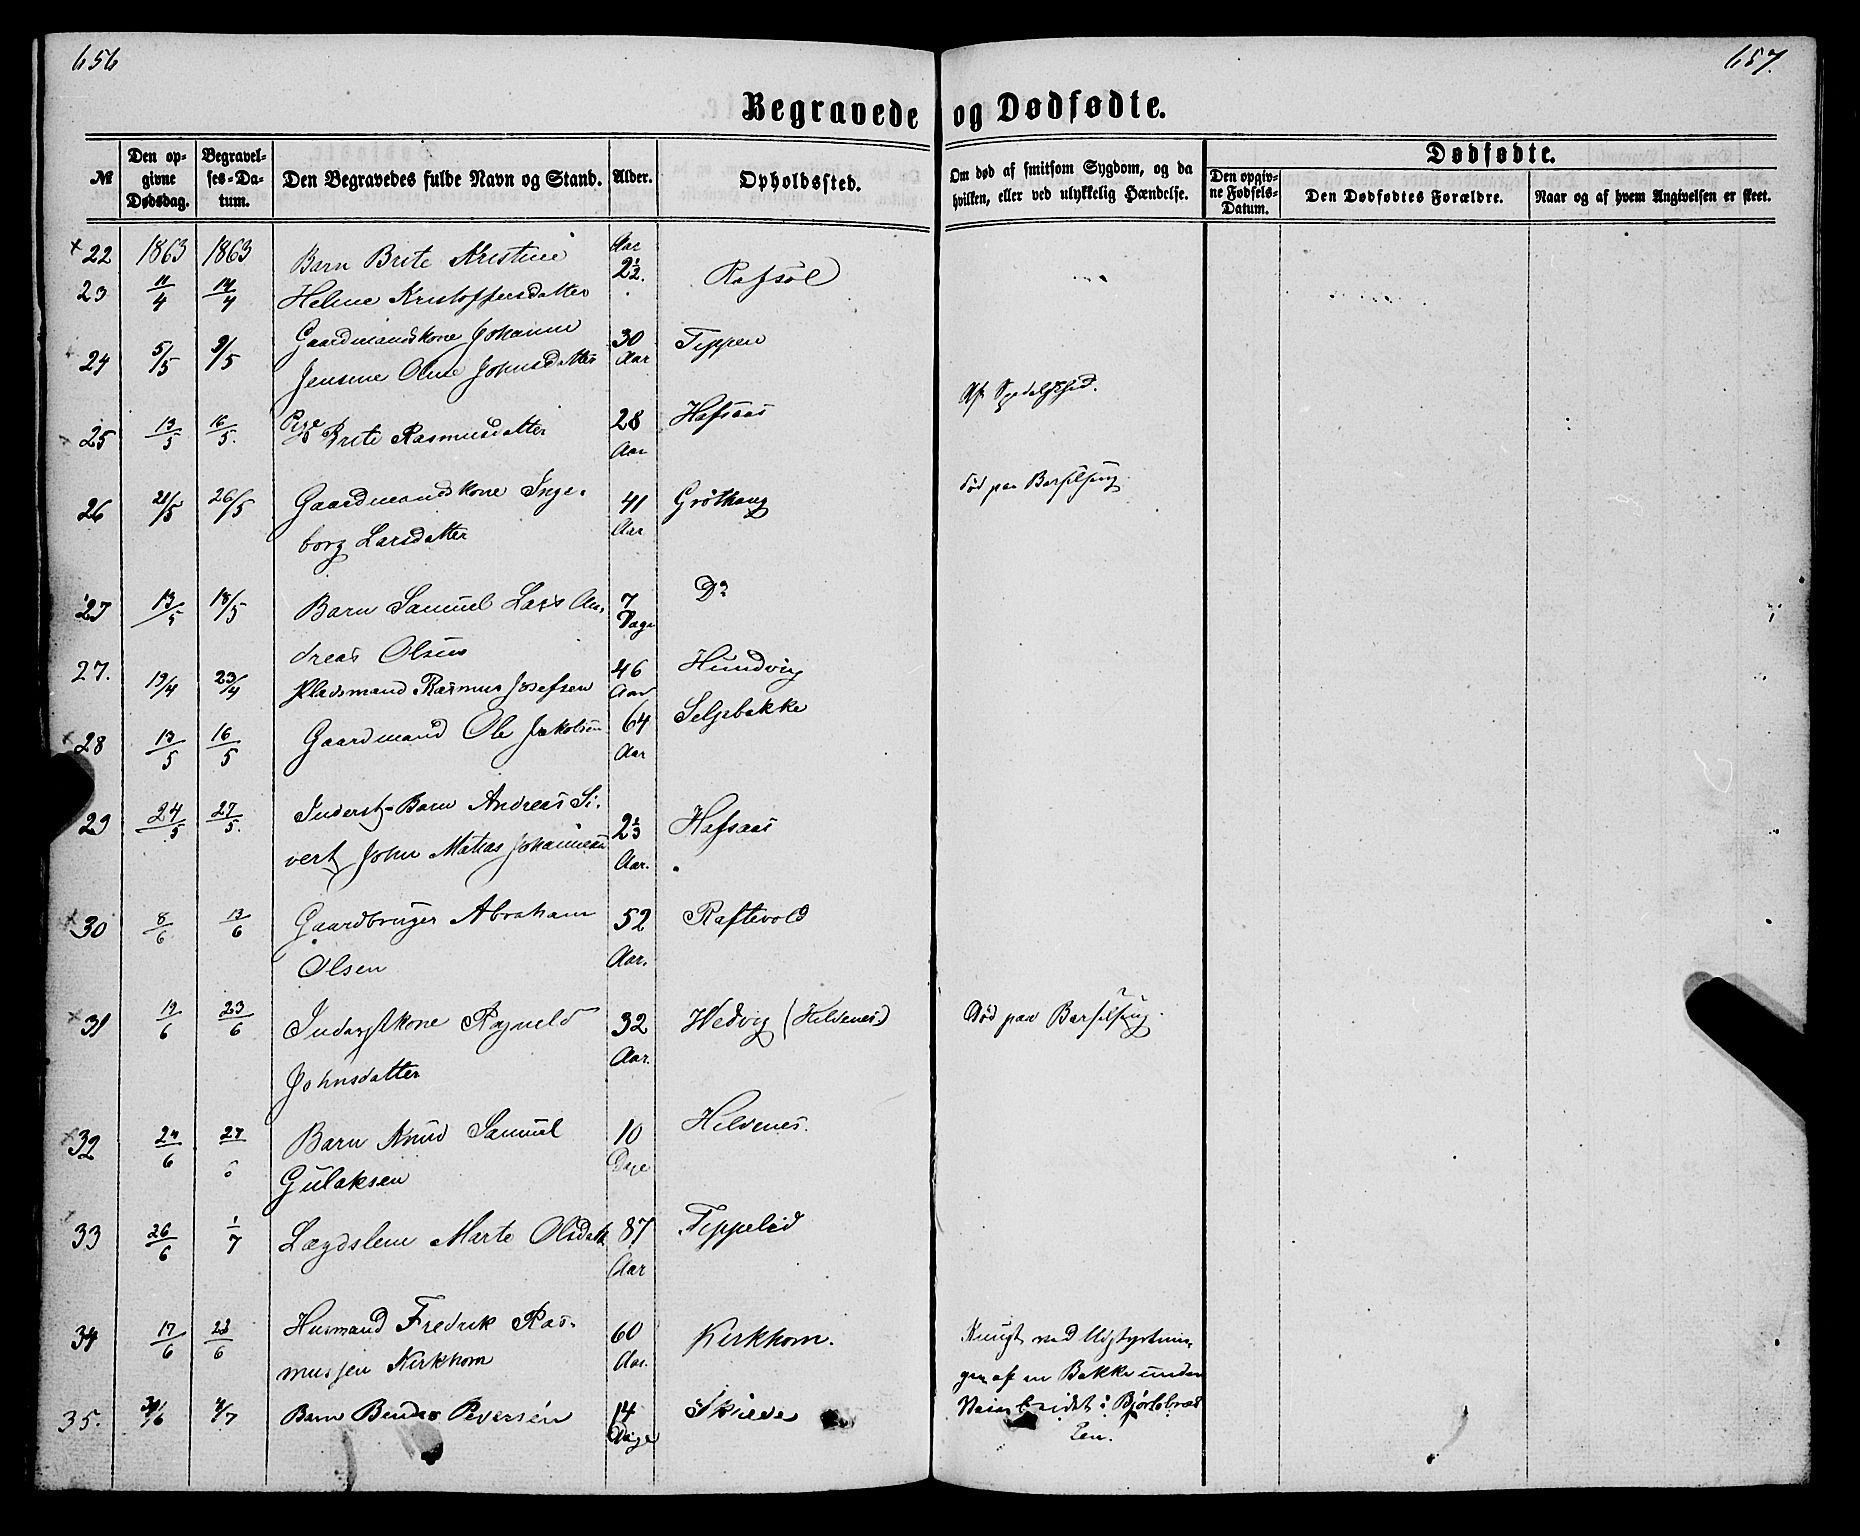 656
657.
Begravede og Dødfødte.
№
Den opgivne Dødsdag.
Begravelses-Datum.
Den Begravedes fulde Navn og Stand.
Alder.
Opholdssted.
Om død af smitsom Sygdom, og da hvilken, eller ved ulykkelig Hændelse.
Dødfødte.
Den opgivne Fødsels-Datum.
Den Dødfødtes Forældre.
Naar og af hvem Angivelsen er skeet.
22 1863 1863 Barn Brite Kristine Aar
23 11/4 14/4 Helene Kristoffersdatter 2½. Rafsøl
24 5/5 9/5 Gaardmandskone Johanne 30 Aar
Jensine Oline Johnsdatter
25 13/5 16/5. Pige Brite Rasmusdatter 28 Aar Hafsaas Af Spedalskhed.
26 21/5 26/5 Gaardmandskone Inge- 41 Aar Grøthaug død paa Barselseng.
borg Larsdatter
27 13/5 18/5 Barn Samuel Lars An- 7 Dage Do
dreas Olsen
27. 19/4 23/4 Pladsmand Rasmus Josefsen 46 Aar Hundvig
28 13/5 16/5 Gaardmand Ole Jakobsen 64 Aar Seljebakke
29 24/5 27/5. Inderst-Barn Andreas Si- 2⅓ Aar. Hafsaas
vert John Matias Johannesen
30 8/6 13/6 Gaardbruger Abraham 52 Aar. Raftevold
Olsen
31 19/6 23/6 Inderstkone Ragneld 32 Aar. Hedvig (Hildenes) Død paa Barselseng.
Johnsdatter
32 24/6 27/6 Barn Knud Samuel 10 Dage Hildenes.
Gulaksen
33 26/6 1/7 Lægdslem Marte Olsdatt 87 Aar
34 17/6 23/6 Husmand Fredrik Ras- 60 Aar. Kirkhorn. Knugt ved Udstyrtnin-
mussen Kirkhorn gen af en Bakke under
35. 30/6 4/7 Barn Pedersen 14 Dage Veiarbeidet i